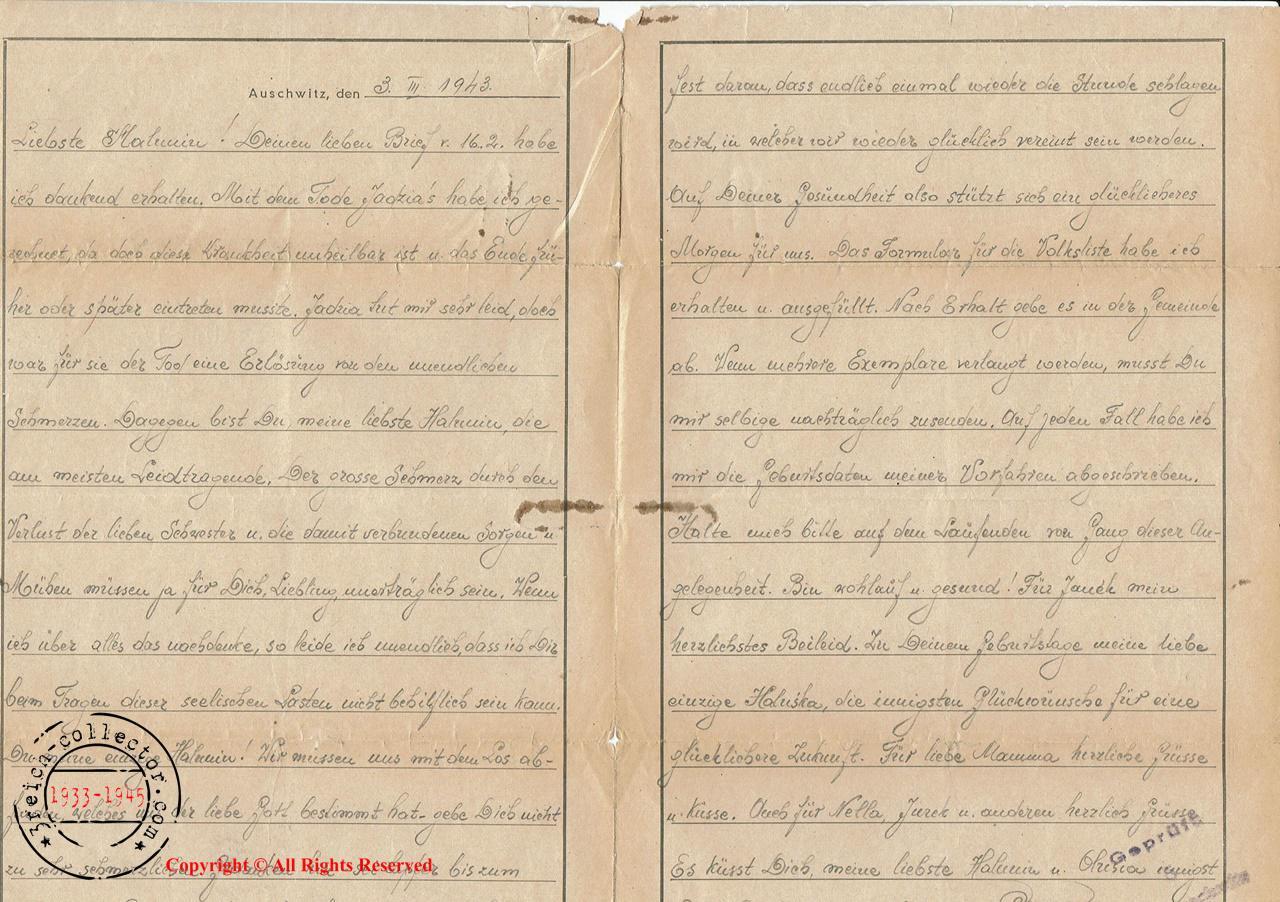 Auschwitz, den 3. III. 1943.
Liebste Halunin! Deinen lieben Brief v. 16.2. habe
ich dankend erhalten. Mit dem Tode Jadzia's habe ich ge-
rechnet, da doch diese Krankheit unheilbar ist u. das Ende frü-
her oder später eintreten musste. Jadzia tut mir sehr leid, doch
war für sie der Tod eine Erlösung von den unendlichen
Schmerzen. Dagegen bist Du, meine liebste Halunin, die
am meisten Leidtragende. Der grosse Schmerz durch den
Verlust der lieben Schwester u. die damit verbundenen Sorgen u.
Mühen müssen ja für Dich, Liebling, unerträglich sein. Wenn
ich über alles das nachdenke, so leide ich unendlich, dass ich Dir
beim Tragen dieser seelischen Lasten nicht behilflich sein kann.
Du meine Halunin! Wir müssen uns mit dem Los ab-
welches der liebe Gott bestimmt hat - gebe Dich nicht
zu sehr bis zum
fest daran, dass endlich einmal wieder die Stunde schlagen
wird, in welcher wir wieder glücklich vereint sein werden.
Auf Deiner Gesundheit also stützt sich ein glücklicheres
Morgen für uns. Das Formular für die Volksliste habe ich
erhalten u. ausgefüllt. Nach Erhalt gebe es in der Gemeinde
ab. Wenn mehrere Exemplare verlangt werden, musst Du
mir selbige nachträglich zusenden. Auf jeden Fall habe ich
mir die Geburtsdaten meiner Vorfahren abgeschrieben.
Halte mich bitte auf dem Laufenden von Gang dieser An-
gelegenheit. Bin wohlauf u. gesund! Für Janek mein
herzlichstes Beileid. Zu Deinem Geburtstage meine liebe
einzige Haluśka, die innigsten Glückwünsche für eine
glücklichere Zukunft. Für liebe Mamma herzliche Grüsse
u. Küsse. Auch für Nella, Jurek u. anderen herzlich Grüsse
Es küsst Dich, meine liebste Halunin u. innigst
Geprüft
3reich-collector.com
1933-1945
Copyright © All Rights Reserved